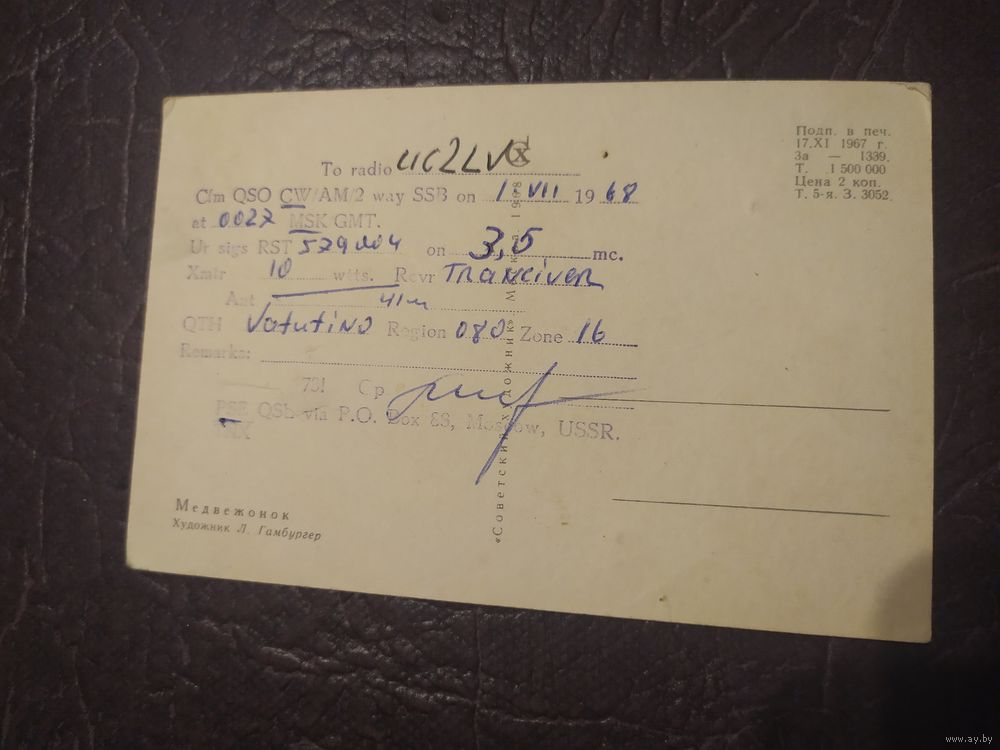 Подп. в печ.
17.XI 1967 г.
За — 1339.
Т. 1 500 000
Цена 2 коп.
Т. 5-я. З. 3052.
To radio UC2LV
Cfm QSO CW/AM/2 way SSB on 1-VII 1968
at 0027 MSK GMT.
Ur sigs RST 579004 on 3,5 mc.
Xmtr 10 wtts. Rcvr Tranciver
Ant 41m
QTH Vatutino Region 080 Zone 16
Remarks:
73! Op
PSE QSL via P.O. Box 88, Moscow, USSR.
TNX
«Советский художник». Москва. 1968
Медвежонок
Художник Л. Гамбургер
www.ay.by